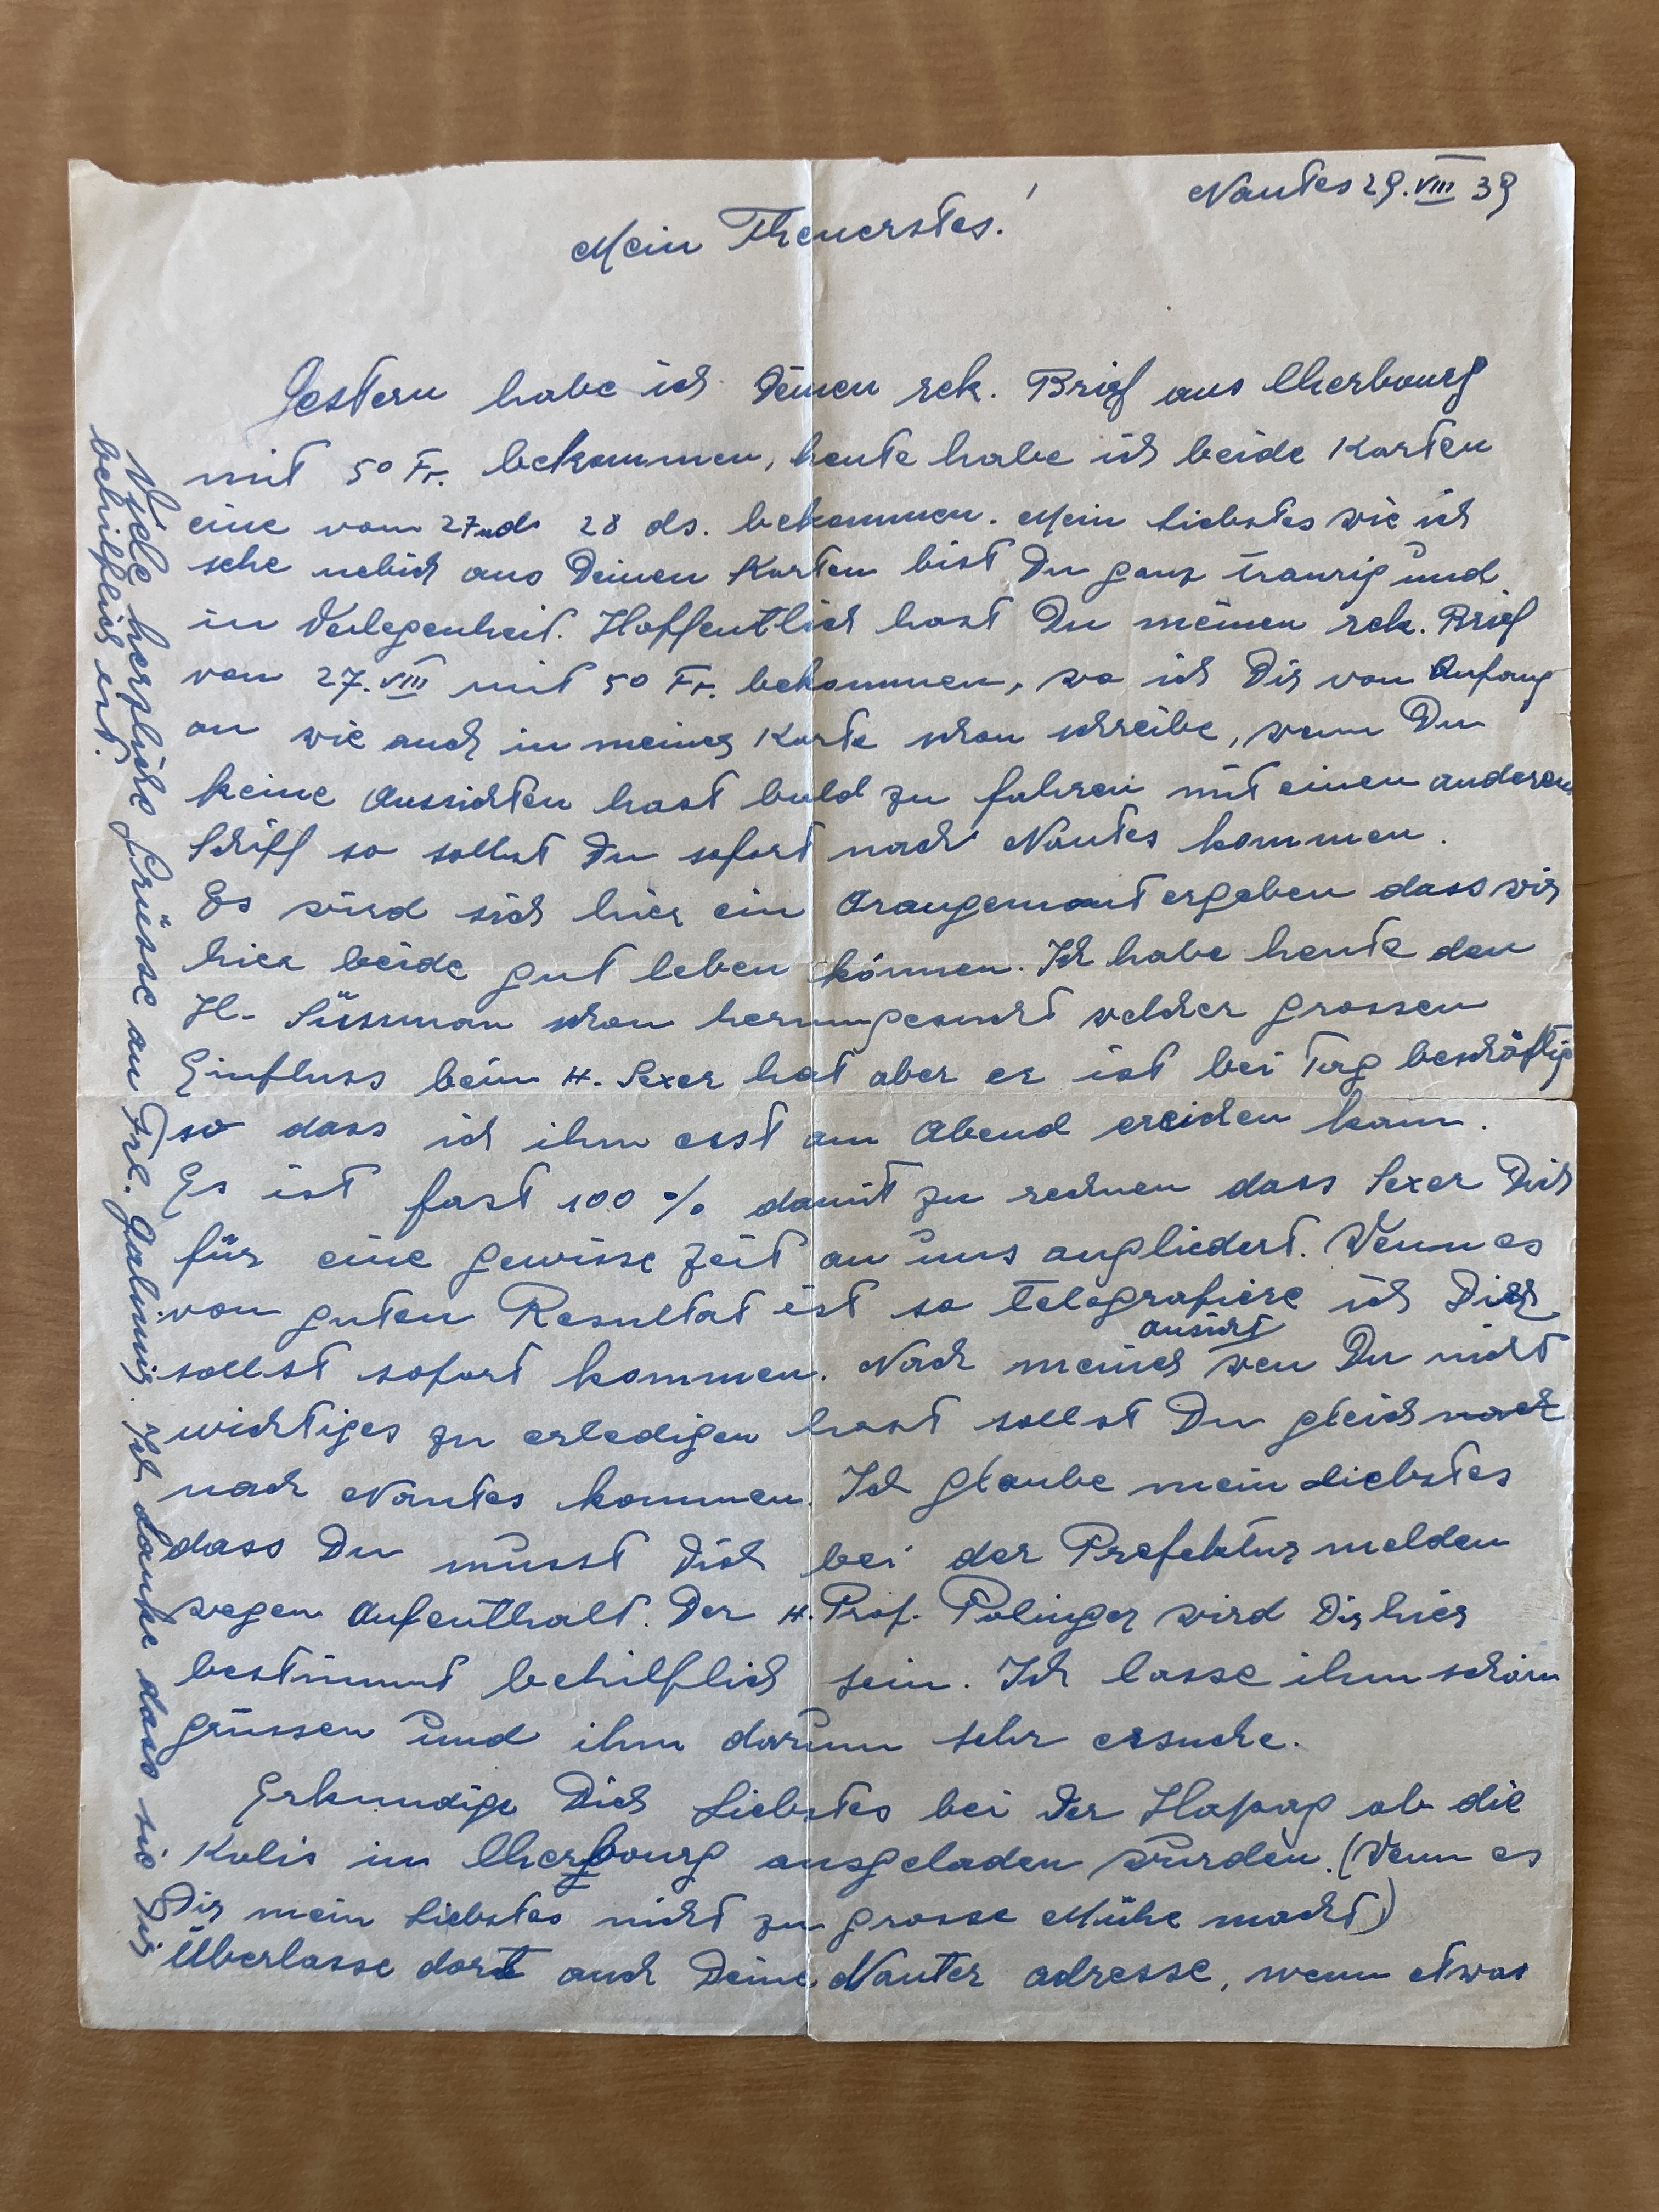 Nantes 29. VIII 39
Mein Theuerstes!
Gestern habe ich Deinen rek. Brief aus Cherbourg
mit 50 Fr. bekommen, heute habe ich beide Karten
eine vom 27 und 28 ds. bekommen. Mein Liebstes wie ich
sehe nebich aus Deinen Karten bist Du ganz traurig und
in Verlegenheit. Hoffentlich hast Du meinen rek. Brief
vom 27. VIII mit 50 Fr. bekommen, wo ich Dir von Anfang
an wie auch in meiner Karte schon schreibe, wenn Du
keine Aussichten hast bald zu fahren mit einen anderen
Schiff so sollst Du sofort nach Nantes kommen.
Es wird sich hier ein Arangemant ergeben dass wir
hier beide gut leben können. Ich habe heute den
H. Süssman schon herumgesucht welcher grossen
Einfluss beim H. Sexer hat aber er ist bei Tag beschäftig
so dass ich ihm erst am Abend ereichen kann.
Es ist fast 100 % damit zu rechnen dass Sexer Dich
für eine gewisse Zeit an uns angliedert. Wenn es
von guten Resultat ist so telegrafiere ich Dir
sollst sofort kommen. Nach meiner ansicht wen Du nicht
wichtiges zu erledigen hast sollst Du gleich nach
nach Nantes kommen. Ich glaube mein Liebstes
dass Du musst Dich bei der Prefektur melden
wegen Aufenthalt. Der H. Prof. Polinger wird Dir hier
bestimmt behilflich sein. Ich lasse ihm schöm
grüssen und ihm darum sehr ersuche.
Erkundige Dich Liebstes bei der Hapag ob die
Kolis in Cherbourg ausgeladen wurden. (Wenn es
Dir mein Liebstes nicht zu grosse Mühe macht)
Überlasse dort auch Deine Nanter adresse, wenn etwas
Viele herzliche Grüsse an Frl. Ich danke dass sie Dir
behilflich ist.